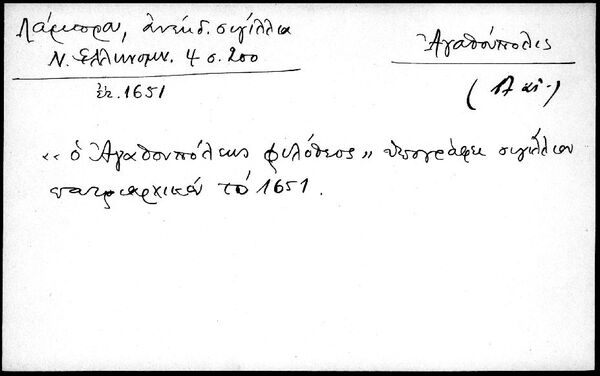 Λάμπρου, ἀνέκδ. σιγίλλια
Ν. Ἑλληνομν. 4 σ. 200
ἔτ. 1651
Ἀγαθόπολις
(17 αἰ.)
«ὁ Ἀγαθουπόλεως Φιλόθεος» ὑπογράφει σιγίλλιον
πατριαρχικόν τό 1651.